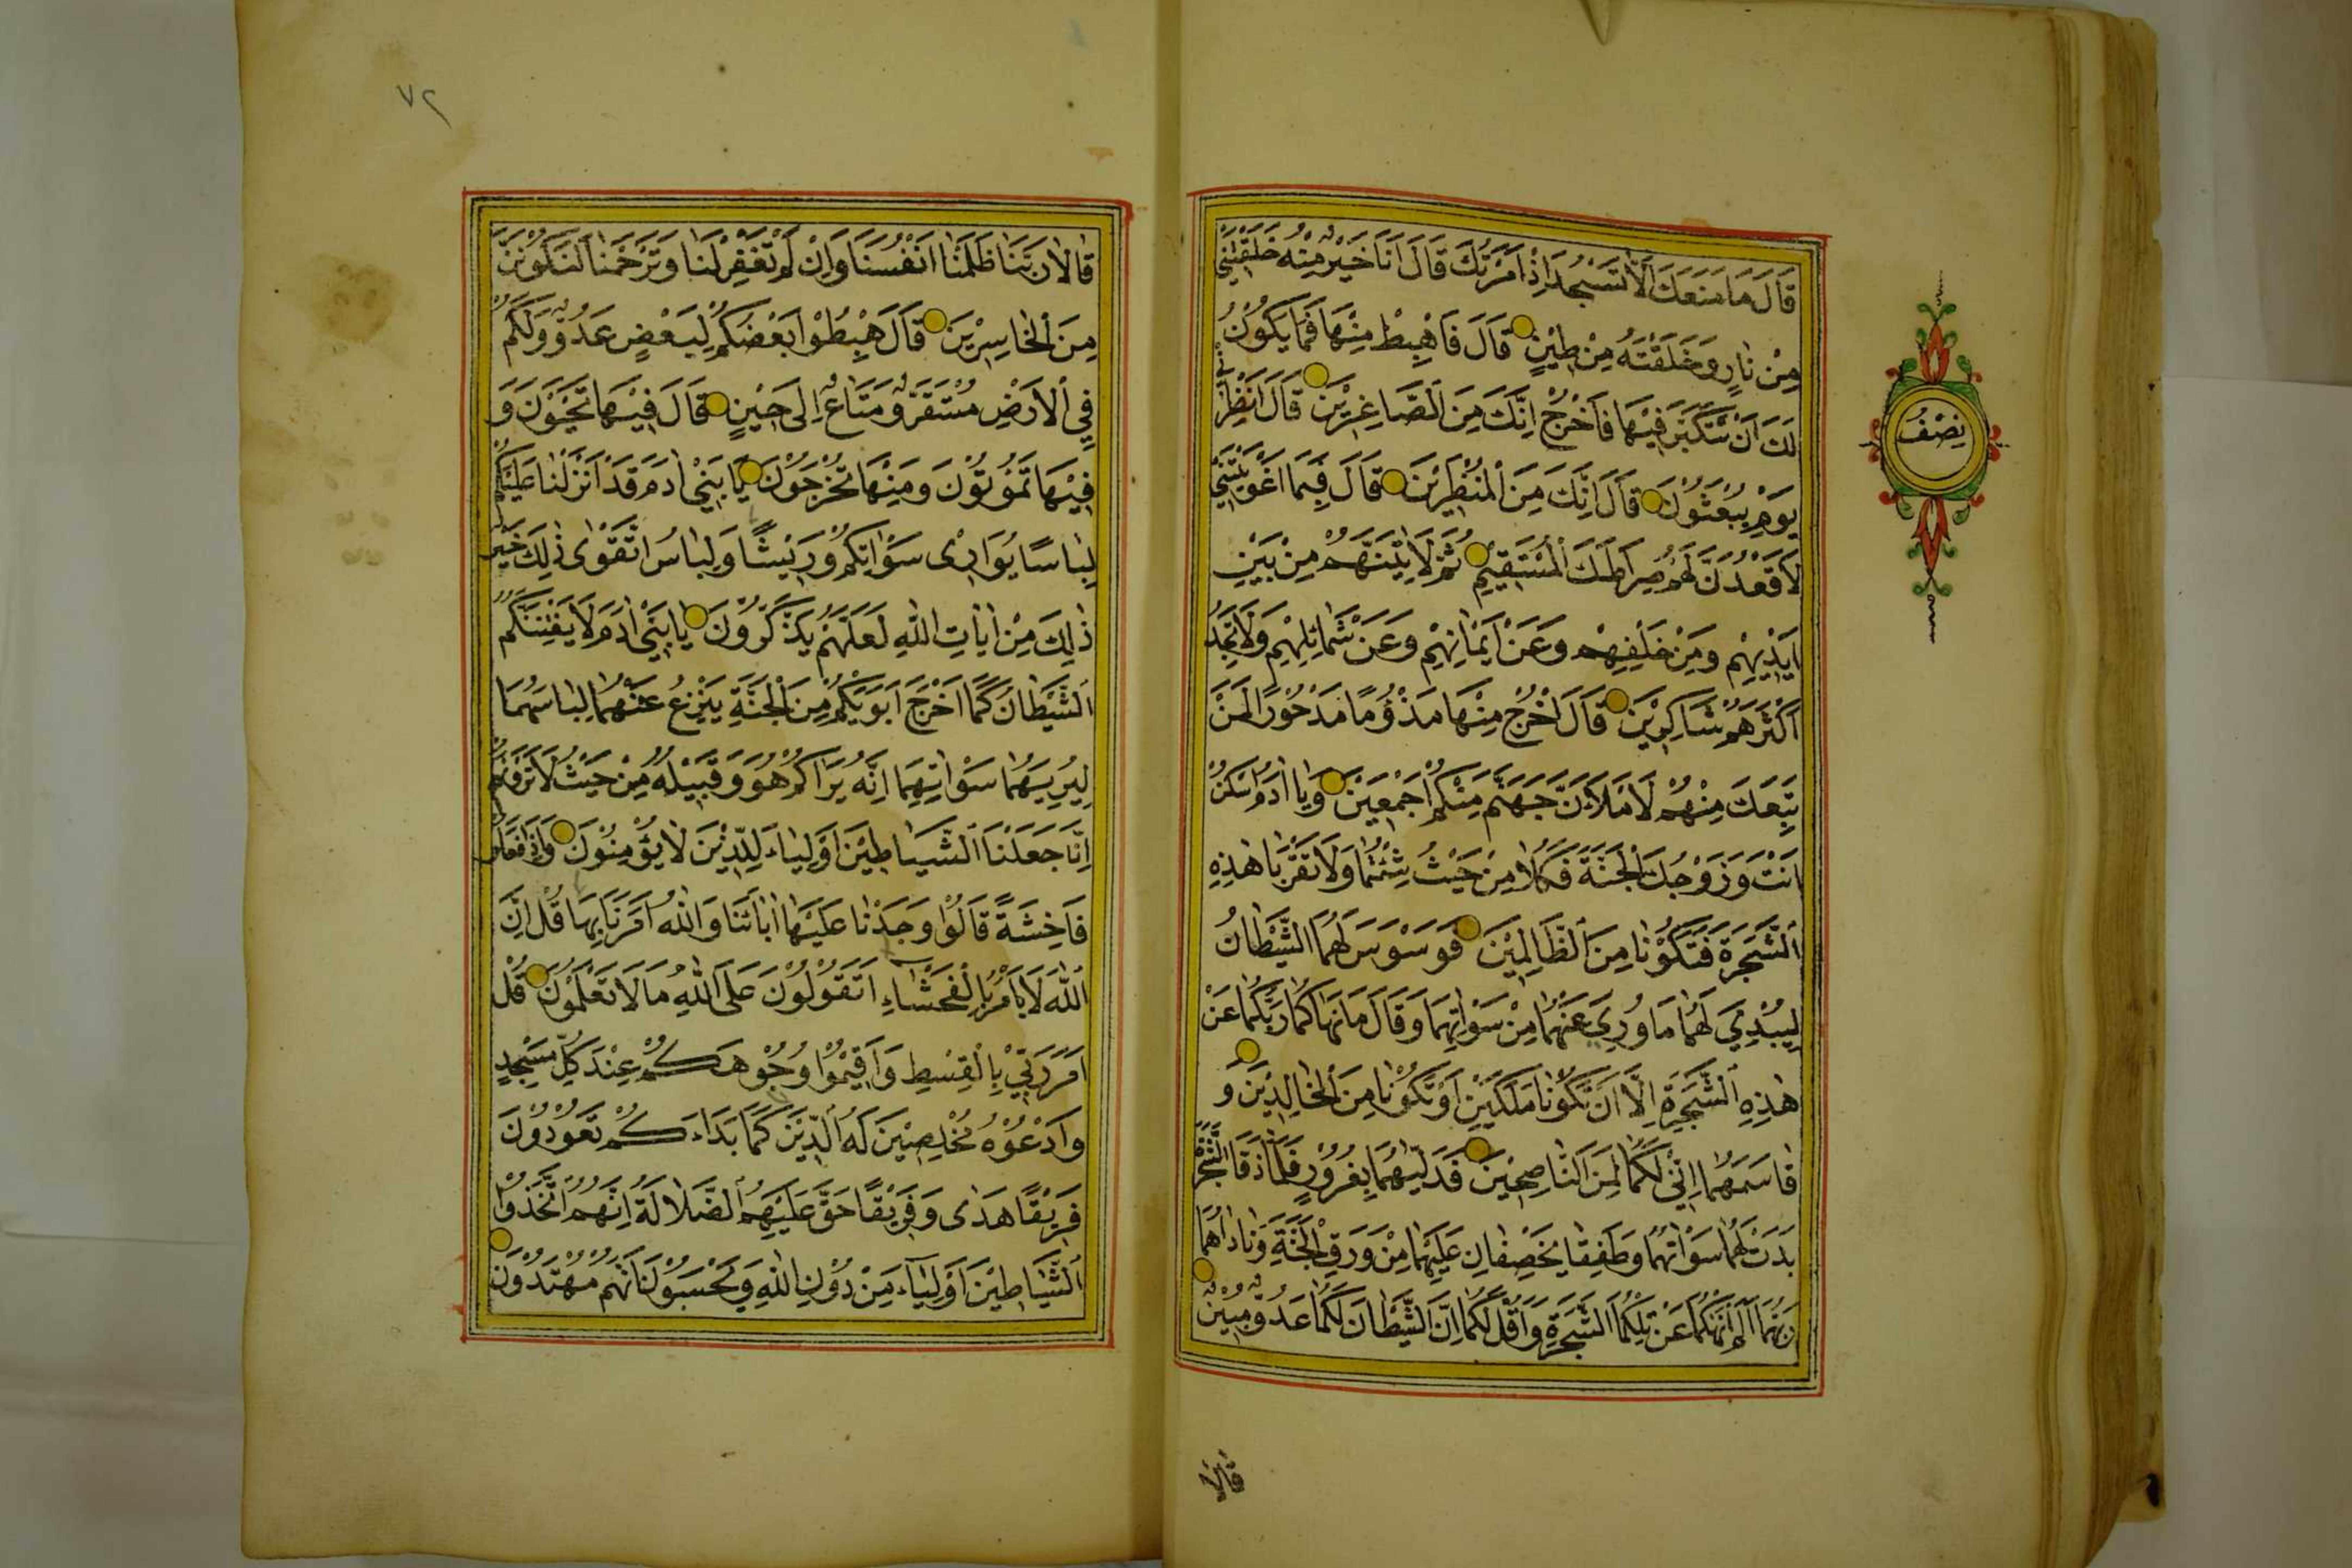 قَالَ مَا مَنَعَكَ اَلَّا تَسْجُدَ اِذْ اَمَرْتُكَ قَالَ اَنَا خَيْرٌ مِنْهُ خَلَقْتَنِي
مِنْ نَارٍ وَخَلَقْتَهُ مِنْ طِيْنٍ قَالَ فَاهْبِطْ مِنْهَا فَمَا يَكُوْنُ
لَكَ اَنْ تَتَكَبَّرَ فِيْهَا فَاخْرُجْ اِنَّكَ مِنَ الصَّاغِرِيْنَ قَالَ اَنْظِرْنِي
يَوْمِ يُبْعَثُوْنَ قَالَ اِنَّكَ مِنَ الْمُنْظَرِيْنَ قَالَ فَبِمَا اَغْوَيْتَنِيْ
لَاَقْعُدَنَّ لَهُمْ صِرَاطَكَ الْمُسْتَقِيْمَ ثُمَّ لَاٰتِيَنَّهُمْ مِنْ بَيْنِ
اَيْدِيْهِمْ وَمِنْ خَلْفِهِمْ وَعَنْ اَيْمَانِهِمْ وَعَنْ شَمَائِلِهِمْ وَلَا تَجِدُ
اَكْثَرَهُمْ شَاكِرِيْنَ قَالَ اخْرُجْ مِنْهَا مَذْؤُمًا مَدْحُوْرًا لَمَنْ
تَبِعَكَ مِنْهُمْ لَاَمْلَاَنَّ جَهَنَّمَ مِنْكُمْ اَجْمَعِيْنَ وَيَا اٰدَمُ اسْكُنْ
اَنْتَ وَزَوْجُكَ الْجَنَّةَ فَكُلَا مِنْ حَيْثُ شِئْتُمَا وَلَا تَقْرَبَا هٰذِهِ
الشَّجَرَةَ فَتَكُوْنَا مِنَ الظَّالِمِيْنَ فَوَسْوَسَ لَهُمَا الشَّيْطَانُ
لِيُبْدِيَ لَهُمَا مَا وُرِيَ عَنْهُمَا مِنْ سَوْاٰتِهِمَا وَقَالَ مَا نَهَاكُمَا رَبُّكُمَا عَنْ
هٰذِهِ الشَّجَرَةِ اِلَّا اَنْ تَكُوْنَا مَلَكَيْنِ اَوْ تَكُوْنَا مِنَ الْخَالِدِيْنَ وَ
قَاسَمَهُمَا اِنِّيْ لَكُمَا لَمِنَ النَّاصِحِيْنَ فَدَلّٰيهُمَا بِغُرُوْرٍ فَلَمَّا ذَاقَا الشَّجَرَةَ
بَدَتْ لَهُمَا سَوْاٰتُهُمَا وَطَفِقَا يَخْصِفَانِ عَلَيْهِمَا مِنْ وَرَقِ الْجَنَّةِ وَنَادَاهُمَا
رَبُّهُمَا اَلَمْ اَنْهَكُمَا عَنْ تِلْكُمَا الشَّجَرَةِ وَاَقُلْ لَكُمَا اِنَّ الشَّيْطَانَ لَكُمَا عَدُوٌّ مُبِيْنٌ
قَالَا
نِصْفُ
٧٢
قَالَا رَبَّنَا ظَلَمْنَا اَنْفُسَنَا وَاِنْ لَمْ تَغْفِرْ لَنَا وَتَرْحَمْنَا لَنَكُوْنَنَّ
مِنَ الْخَاسِرِيْنَ قَالَ هْبِطُوْا بَعْضُكُمْ لِبَعْضٍ عَدُوٌّ وَلَكُمْ
فِي الْاَرْضِ مُسْتَقَرٌّ وَمَتَاعٌ اِلٰى حِيْنٍ قَالَ فِيْهَا تَحْيَوْنَ وَ
فِيْهَا تَمُوْتُوْنَ وَمِنْهَا تُخْرَجُوْنَ يَا بَنِيْ اٰدَمَ قَدْ اَنْزَلْنَا عَلَيْكُمْ
لِبَاسًا يُوَارِىْ سَوْاٰتِكُمْ وَرِيْشًا وَلِبَاسُ اتَّقْوٰى ذٰلِكَ خَيْرٌ
ذٰلِكَ مِنْ اٰيَاتِ اللّٰهِ لَعَلَّهُمْ يَذَّكَّرُوْنَ يَا بَنِيْ اٰدَمَ لَا يَفْتِنَنَّكُمُ
الشَّيْطَانُ كَمَا اَخْرَجَ اَبَوَيْكُمْ مِنَ الْجَنَّةِ يَنْزِعُ عَنْهُمَا لِبَاسَهُمَا
لِيُرِيَهُمَا سَوْاٰتِهِمَا اِنَّهُ يَرَاكُمْ هُوَ وَقَبِيْلُهُ مِنْ حَيْثُ لَا تَرَوْنَهُمْ
اِنَّا جَعَلْنَا الشَّيَاطِيْنَ اَوْلِيَاءَ لِلَّذِيْنَ لَا يُؤْمِنُوْنَ وَاِذَا فَعَلُوْا
فَاحِشَةً قَالُوْا وَجَدْنَا عَلَيْهَا اٰبَاءَنَا وَاللّٰهُ اَمَرَنَا بِهَا قُلْ اِنَّ
اللّٰهَ لَا يَاْمُرُ بِالْفَحْشَاءِ اَتَقُوْلُوْنَ عَلَى اللّٰهِ مَا لَا تَعْلَمُوْنَ قُلْ
اَمَرَ رَبِّيْ بِالْقِسْطِ وَاَقِيْمُوْا وُجُوْهَكُمْ عِنْدَ كُلِّ مَسْجِدٍ
وَادْعُوْهُ مُخْلِصِيْنَ لَهُ الدِّيْنَ كَمَا بَدَاَكُمْ تَعُوْدُوْنَ
فَرِيْقًا هَدٰى وَفَرِيْقًا حَقَّ عَلَيْهِمُ الضَّلَالَةُ اِنَّهُمُ اتَّخَذُوْا
الشَّيَاطِيْنَ اَوْلِيَاءَ مِنْ دُوْنِ اللّٰهِ وَيَحْسَبُوْنَ اَنَّهُمْ مُهْتَدُوْنَ